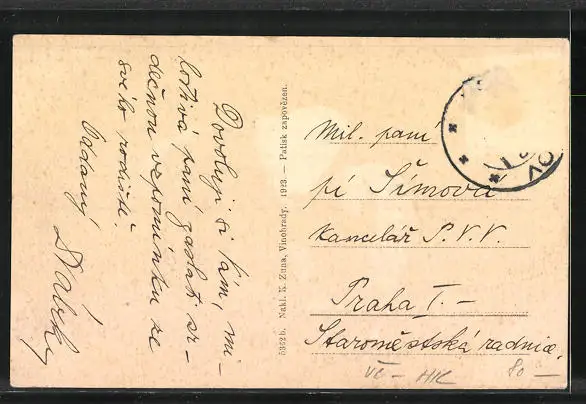 Dovoluji si Vám, mi-
lostivá paní zaslati sr-
dečnou vzpomínku ze
svého rodiště.
Oddaný
5362 b. Nakl. K. Zuna, Vinohrady. 1923. — Patisk zapovězen.
Mil. paní
pí Šímová
kancelář P.V.V.
Praha I. —
Staroměstská radnice.
VČ — HK 80 —
VO